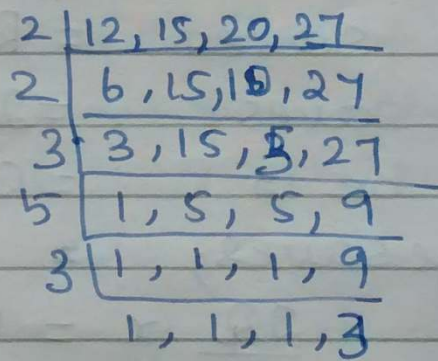 2 | 12, 15, 20, 27
2 | 6, 15, 10, 27
3 | 3, 15, 5, 27
5 | 1, 5, 5, 9
3 | 1, 1, 1, 9
1, 1, 1, 3